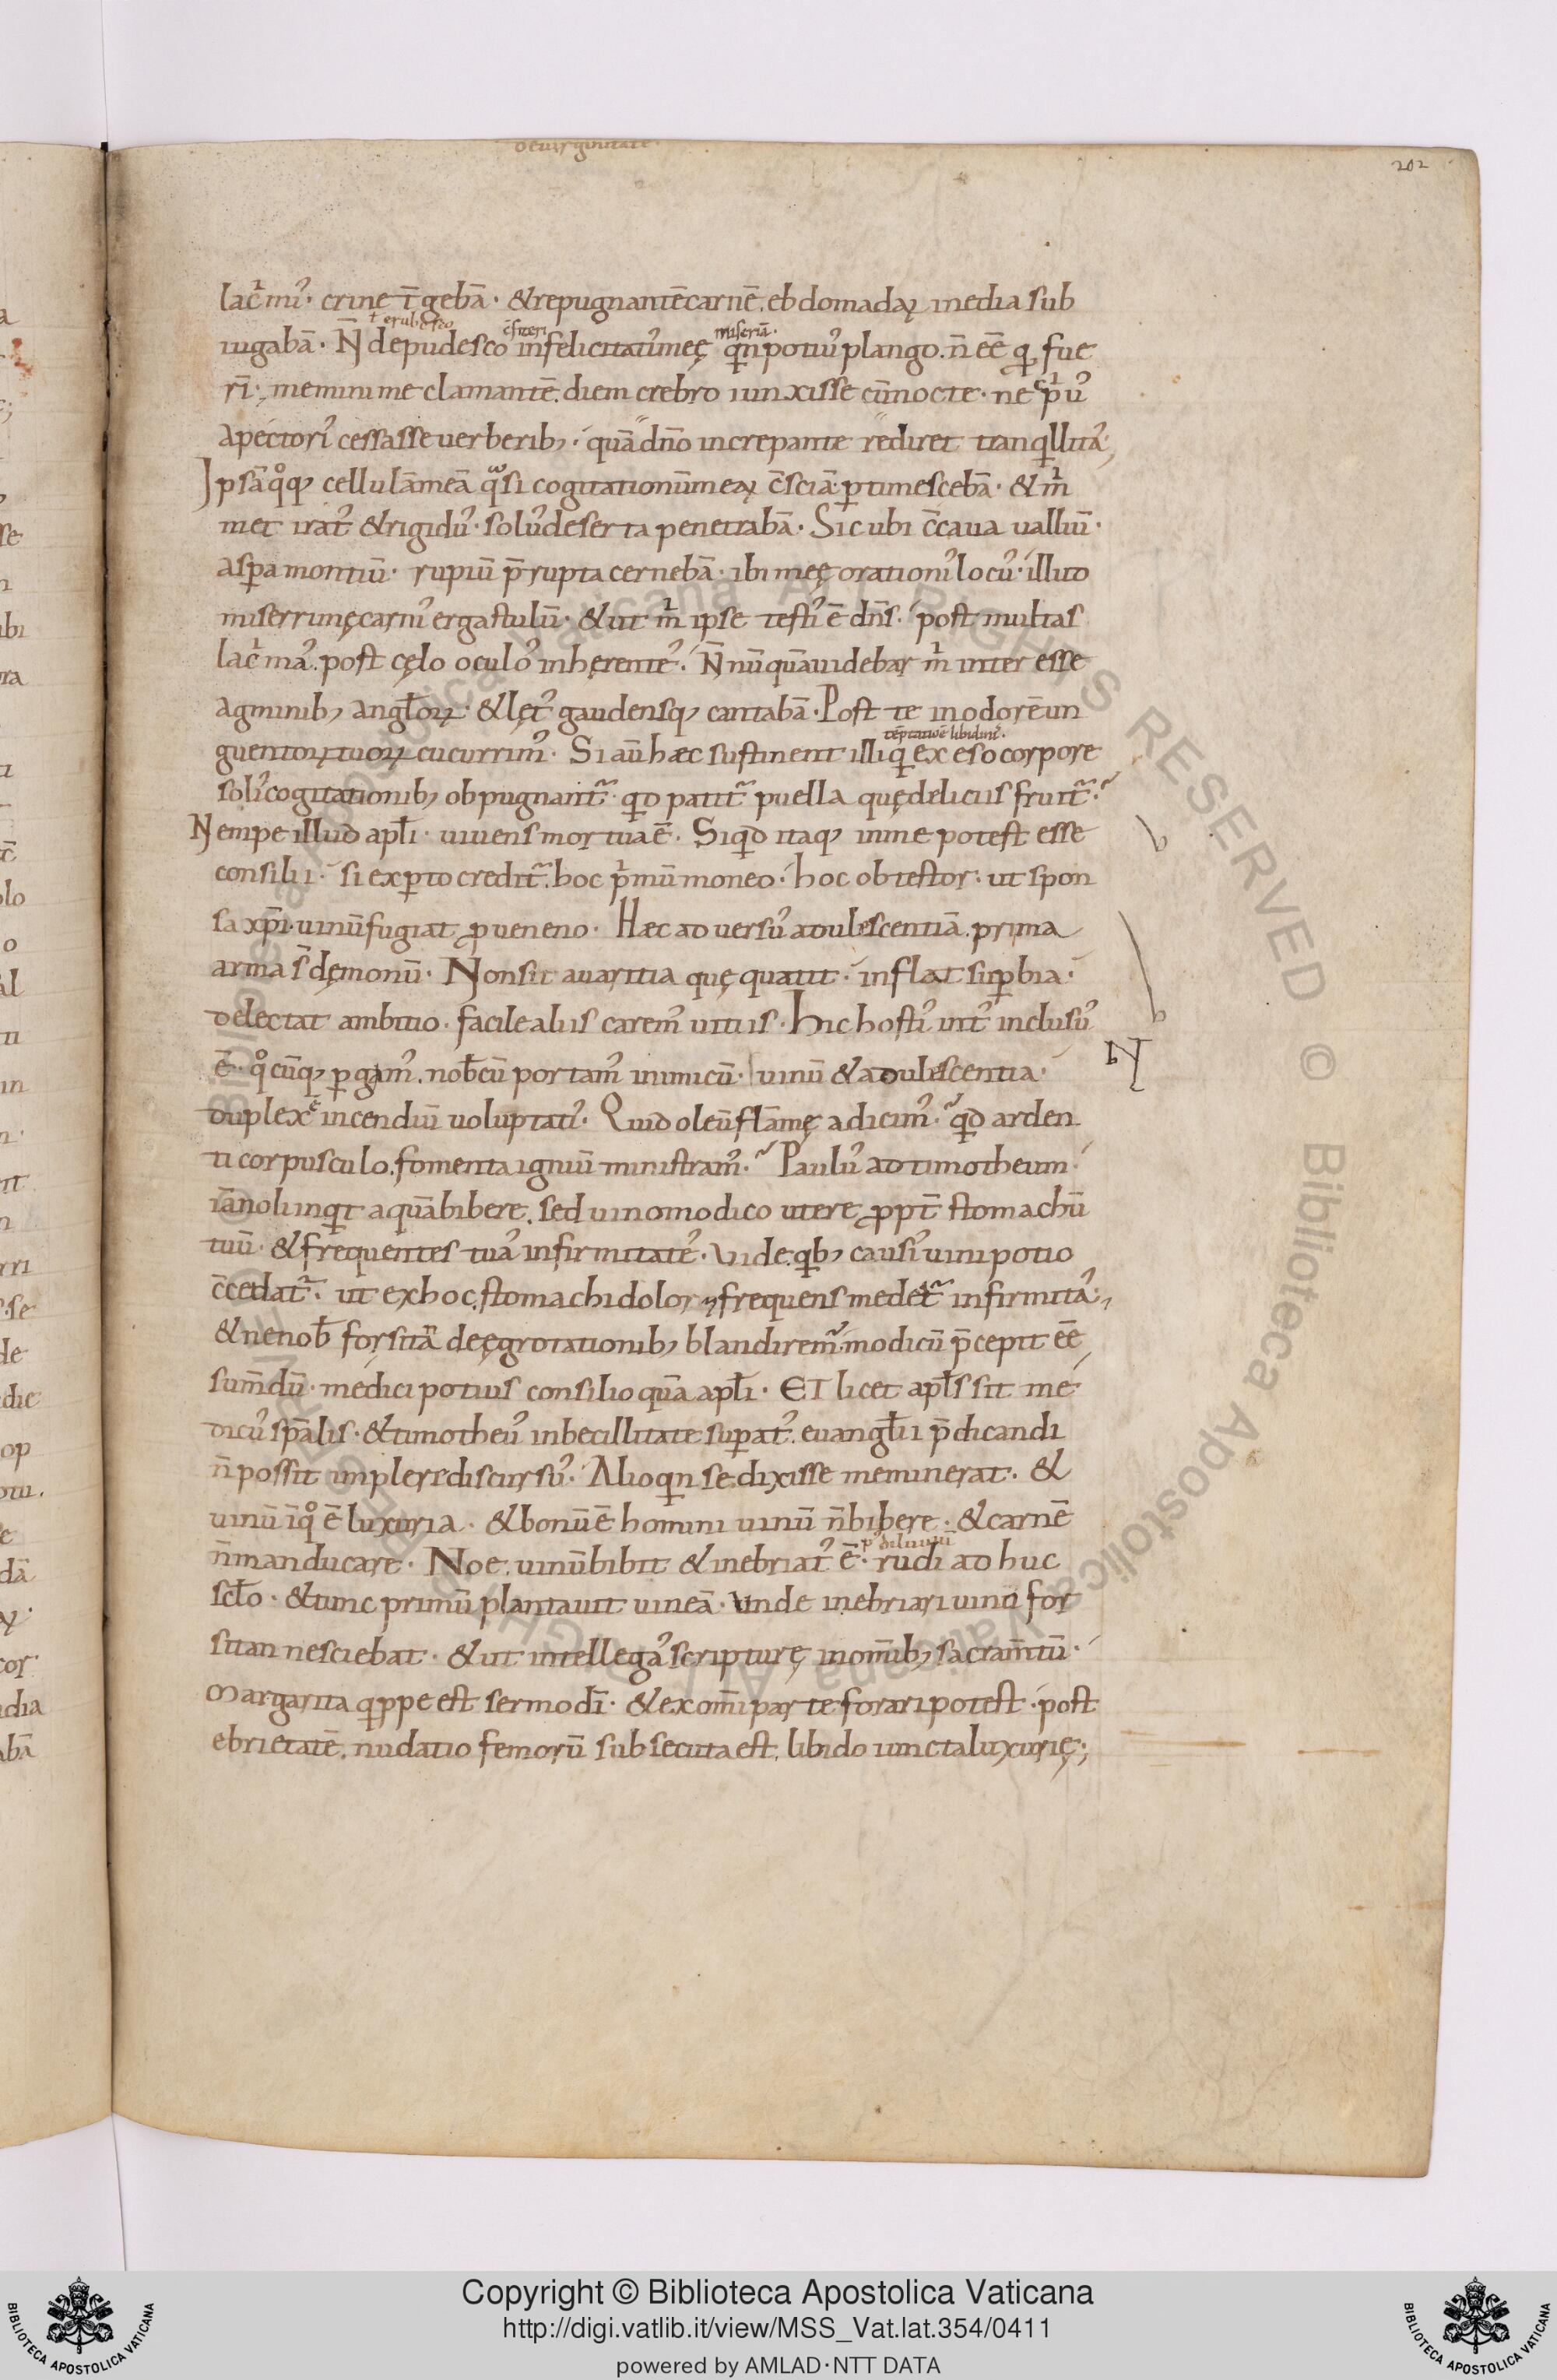 de uirginitate
202
lac̄mꝭ· crine t̄gebā· & repugnantē carnē. ebdomadaꝝ media sub
ł erubesco c̄fiteri miseriā·
iugabā· N̄ depudesco infelicitatꝭ meę qͥn potiuꝰ plango. n̄ eē qͥ fue
rī· memini me clamantē. diem crebro iunxisse cū nocte· nec pͥuꝰ
a pectorꝭ cessasse uerberibꝫ· quā dn̄o increpante rediret tranqͥllitaꝰ;
Ipsā qͦqꝫ cellulā meā qͣsi cogitationū meaꝝ c̄sciā ꝑtimescebā· & mͥ
met iratꝰ & rigiduꝰ· soluꝰ deserta penetrabā· Sicubi c̄caua ualliū·
aspa montiū· rupiū p̄rupta cernebā· ibi meę orationꝭ locuꝰ· illud
miserrimę carnꝭ ergastulū· & ut mͥ ipse testꝭ ē dn̄s· post multas
lac̄maꝰ. post cęlo oculoꝰ inhęrenteꝰ· N̄nūquā uidebar mͥ interesse
agminibꝫ angl̄oꝝ· & lętꝰ gaudensqꝫ cantabā· Post te in odorē un
tēptatiōe libidinꝭ·
guentoꝝ tuoꝝ cucurrimꝰ· Si aū hæc sustinent illi qͥ exeso corpore
solꝭ cogitationibꝫ obpugnant̃· qͥd patit̃ puella quę deliciis fruit̃·
Nempe illud apl̄i· uiuens mortua ē· Siqͥd itaqꝫ in me potest esse
consilii· si exꝑto credit̃. hoc pͥmū moneo· hoc obtestor· ut spon
sa xp̄i· uinū fugiat ꝓ ueneno· Hæc aduersuꝰ adulescentiā. prima
arma s̄ dęmonū· Non sic auaritia quę quatit· inflat supbia·
delectat ambitio· facile aliis caremꝰ uitiis· Hic hostꝭ intꝰ inclusuꝰ
ē· qͦcūqꝫ ꝑgimꝰ. nob̄cū portamꝰ inimicū· uinū & adulescentia·
duplex ē incendiū uoluptatꝭ· Quid oleū flāmę adicimꝰ· qͥd arden
ti corpusculo. fomenta igniū ministramꝰ· Pauluꝰ ad timotheum·
iā noli inqͥt aquā bibere. sed uino modico utere ꝓpt̄ stomachū
tuū· & frequentes tuaꝰ infirmitateꝰ· Vide. qͥbꝫ causꝭ uini potio
c̄cedat̃· ut ex hoc. stomachi dolor & frequens medet̃ infirmitaꝰ;
& ne nob̄ forsitā de ęgrotationibꝫ blandiremꝰ· modicū p̄cepit eē
sum̄dū· medici potius consilio quā apl̄i· ET licet apl̄s sit me
dicuꝰ sp̄alis· & timotheuꝰ inbecillitate supatꝰ. euangl̄ii p̄dicandi
n̄ possit implere discursuꝰ· Alioqͥn se dixisse meminerat· &
uinū ī qͦ ē luxuria· & bonū ē homini uinū n̄ bibere· & carnē
p' diluuiū
n̄ manducare· Noe. uinū bibit & inebriatꝰ ē· rudi ad huc
scl̄o· & tunc primū plantauit uineā· Vnde inebriari uino for
sitan nesciebat· & ut intellegaꝰ scripturę in om̄ibꝫ sacram̄tū·
Margarita qͥppe est sermo dī· & ex om̄i parte forari potest· post
ebrietatē. nudatio femorū subsecuta est. libido iuncta luxurię;
BIBLIOTECA APOSTOLICA VATICANA
Copyright © Biblioteca Apostolica Vaticana
http://digi.vatlib.it/view/MSS_Vat.lat.354/0411
powered by AMLAD·NTT DATA
BIBLIOTECA APOSTOLICA VATICANA